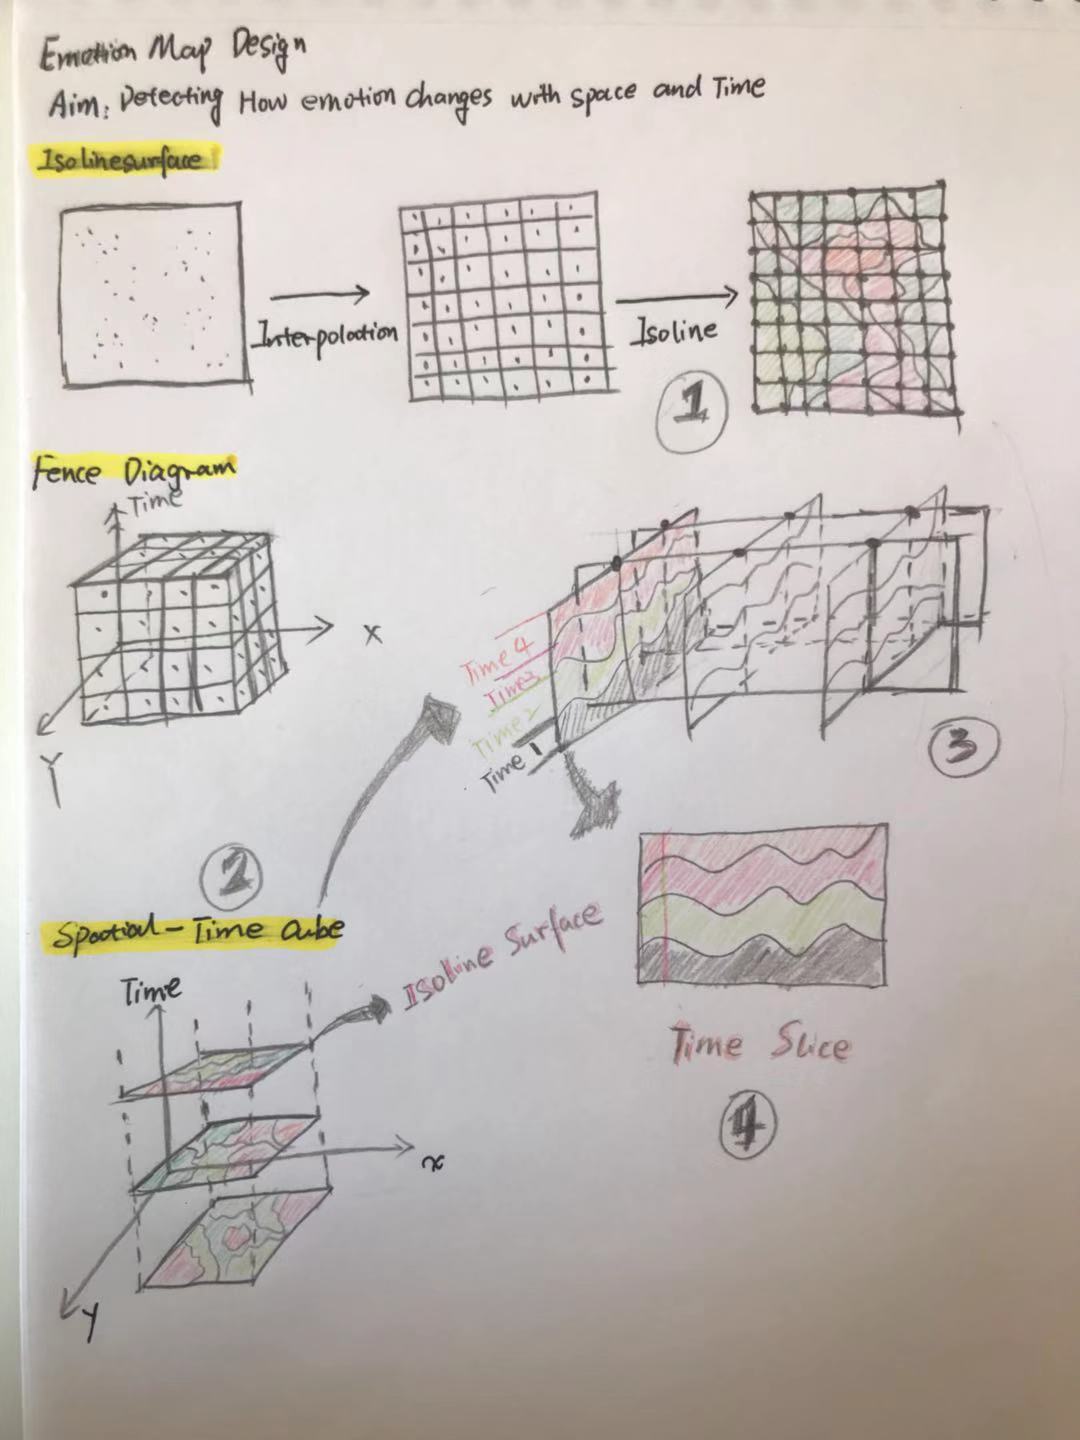 Emotion Map Design
Aim: Detecting How emotion changes with space and Time
Isolinesurface
Interpolation
Isoline
1
Fence Diagram
Time
X
Y
Time 4
Time3
Time 2
Time 1
3
2
Spatial-Time Cube
Time
Isoline Surface
x
Y
Time Slice
4